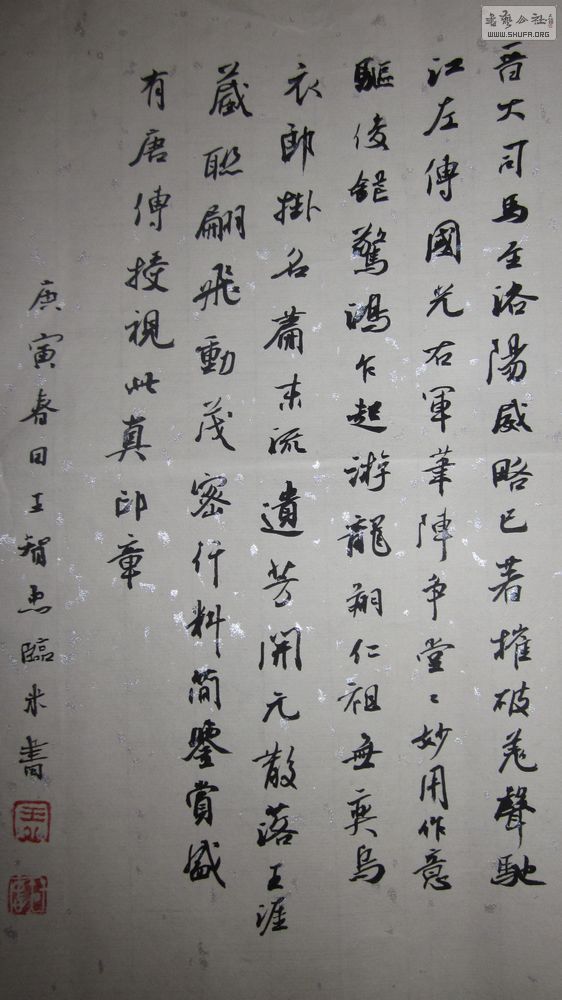 晋大司馬至洛陽威略已著摧破羌聲馳
江左傳國光右軍筆陣争堂〻妙用作意
驅使鋩驚鴻乍起游龍翔仁祖無奕烏
衣郎掛名蕭束流遺芳開元散落王涯
蔵聯翩飛動茂密行料簡鑒賞盛
有唐傳授視此真印章
庚寅春日王智忠臨米書
書藝公社
WWW.SHUFA.ORG